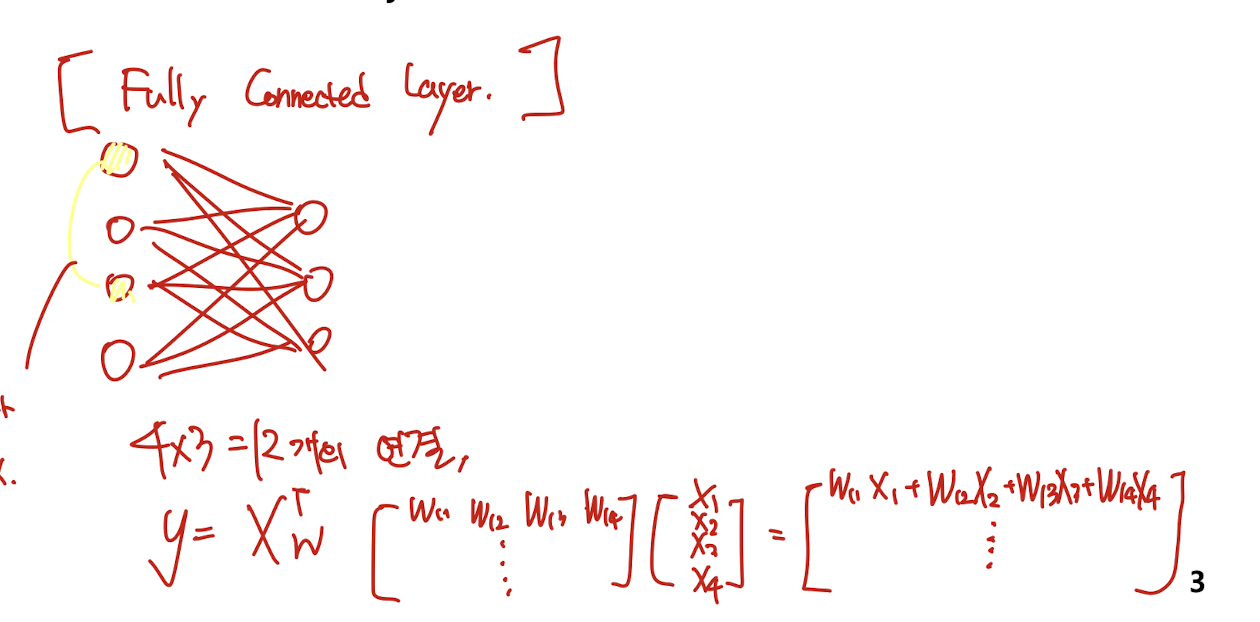 [ Fully Connected Layer. ]
4x3 = 12개의 연결,
y = X^T W [ W11 W12 W13 W14 ⋮ ] [ X1 X2 X3 X4 ] = [ W11 X1 + W12 X2 + W13 X3 + W14 X4 ⋮ ]
3